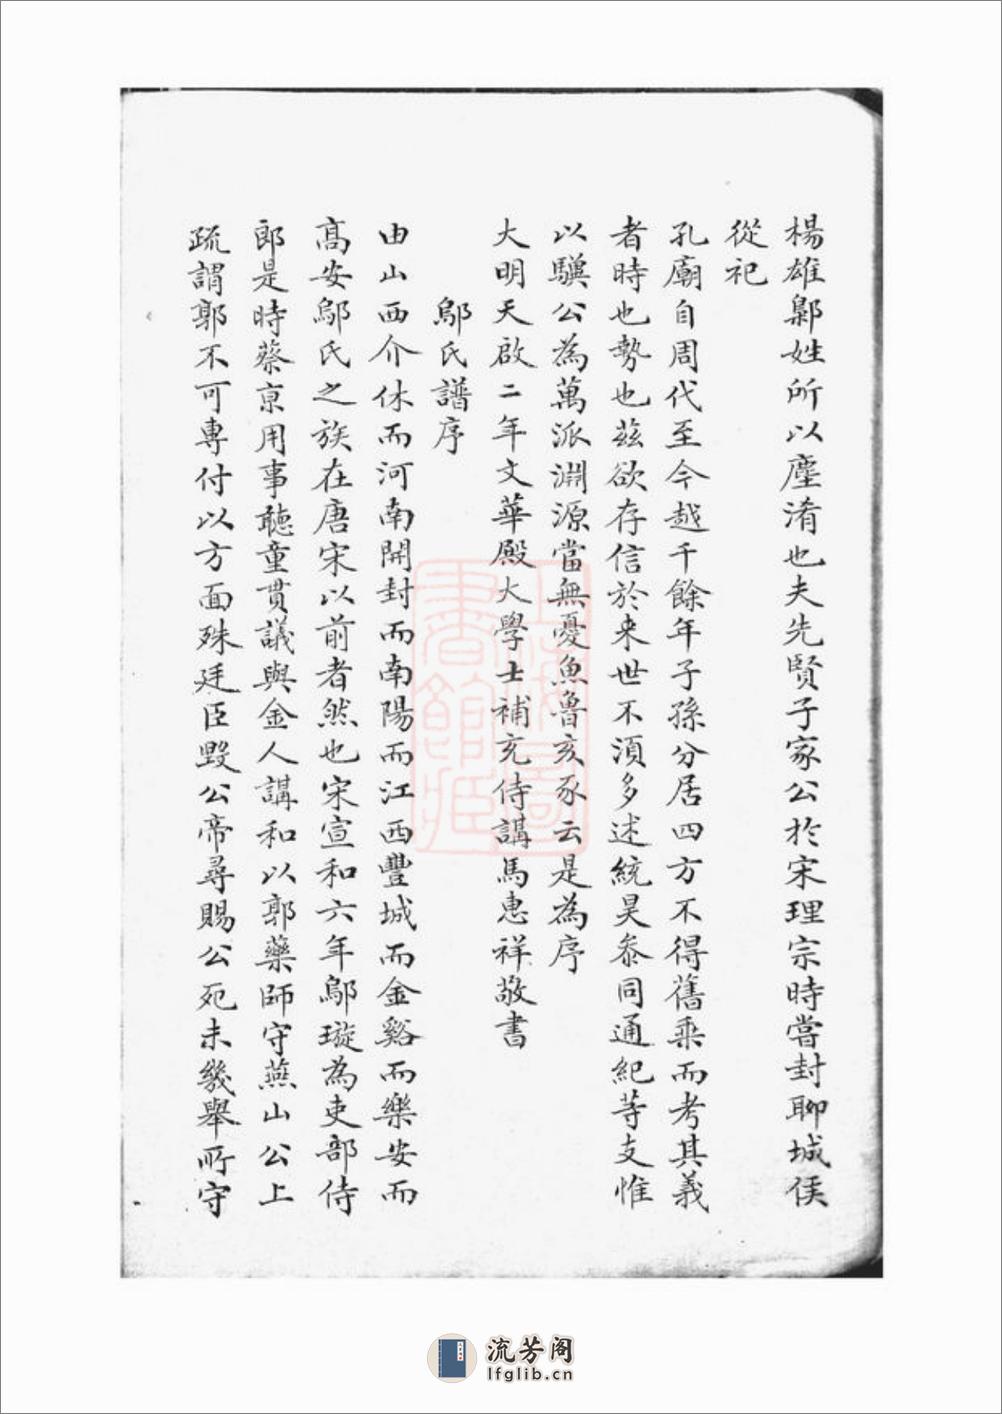 楊雄鄡姓所以塵淆也夫先賢子家公於宋理宗時嘗封聊城侯
從祀
孔廟自周代至今越千餘年子孫分居四方不得舊乘而考其義
者時也勢也茲欲存信於来世不須多述統昊叅同通紀等支惟
以驥公為萬派淵源當無憂魚魯亥豕云是為序
大明天啟二年文華殿大學士補充侍講馬惠祥敬書
鄔氏譜序
由山西介休而河南開封而南陽而江西豐城而金谿而樂安而
高安鄔氏之族在唐宋以前者然也宋宣和六年鄔璇為吏部侍
郎是時蔡京用事聽童貫議與金人講和以郭藥師守燕山公上
疏謂郭不可專付以方面殊廷臣毀公帝尋賜公死未幾舉所守
上海圖
書館藏
流芳阁
lfglib.cn